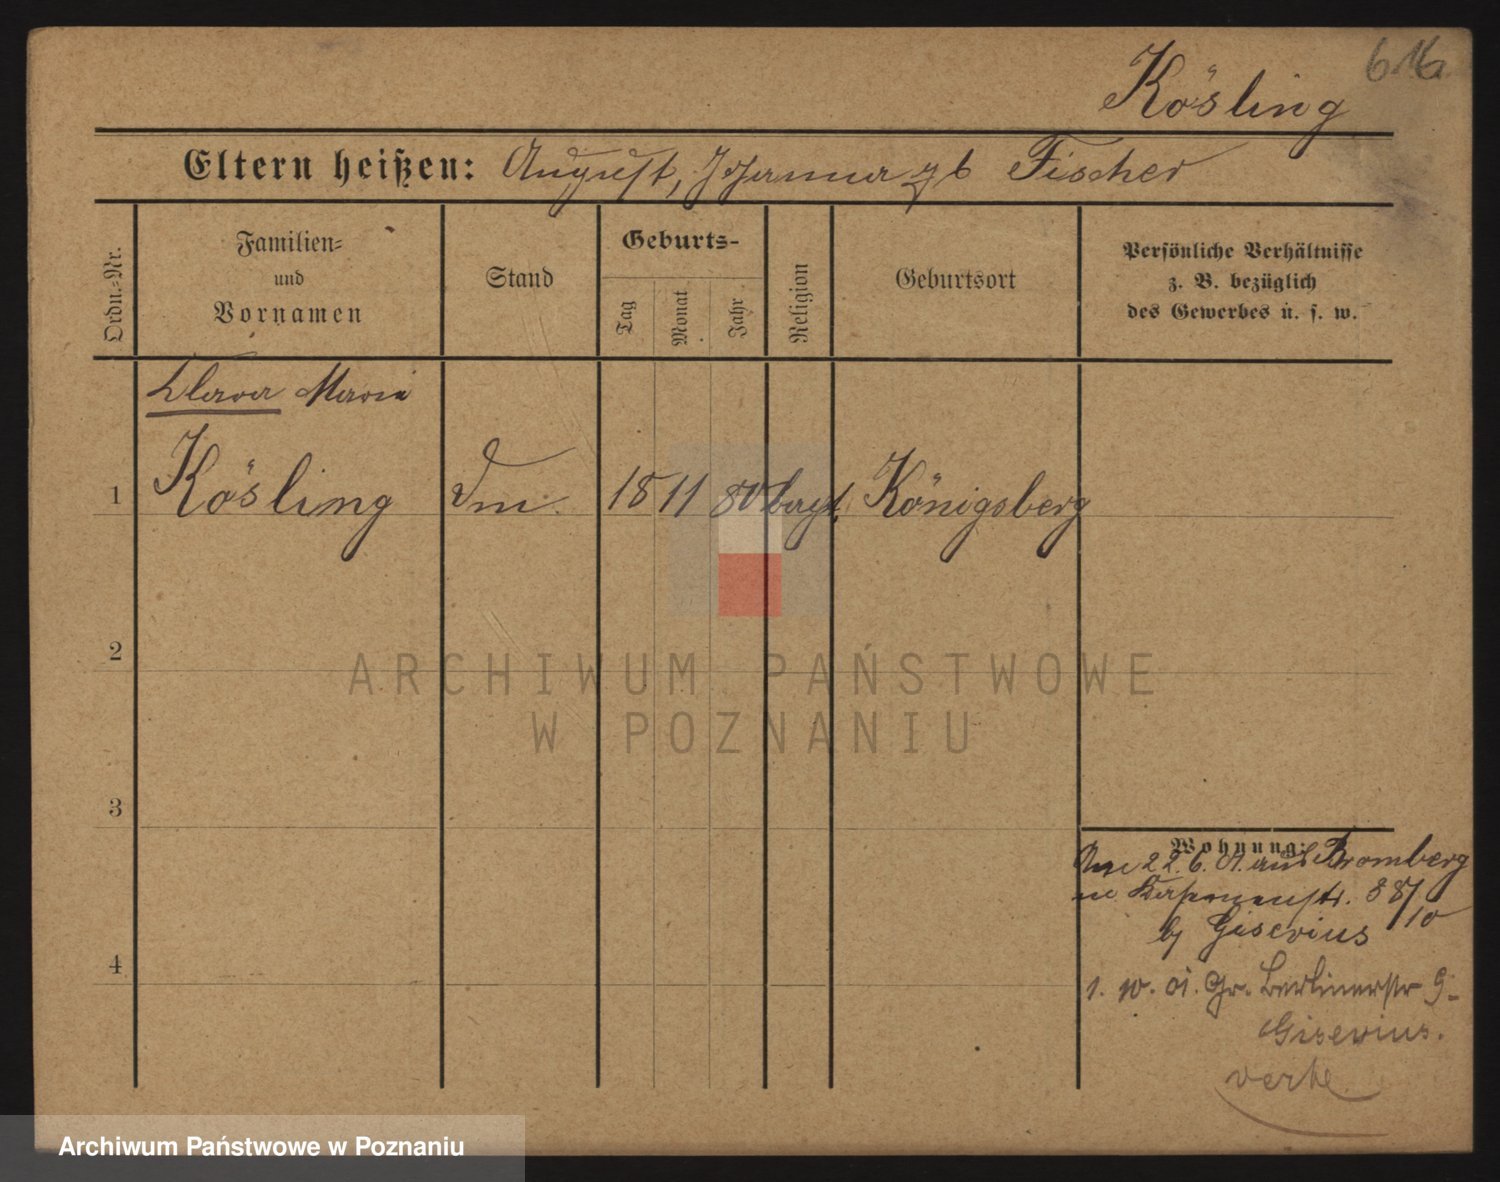 Kösling
Eltern heißen: August, Johanna gb Fischer
Ordn.-Nr.
Familien-
und
Vornamen
Stand
Geburts-
Tag
Monat
Jahr
Religion
Geburtsort
Persönliche Verhältnisse
z. B. bezüglich
des Gewerbes u. s. w.
Klara Maria
1 Kösling 18 11 80 Königsberg
2
3
4
Wohnung:
22. 6. 01. aus Bromberg
88/10
Gisevius
1. 10. 01. Gr. Berlinerstr 9-
Gisevius.
verte
ARCHIWUM PAŃSTWOWE
W POZNANIU
Archiwum Państwowe w Poznaniu